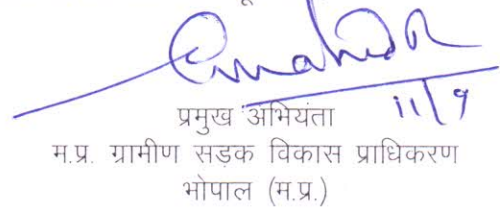 11/9
प्रमुख अभियंता
म.प्र. ग्रामीण सड़क विकास प्राधिकरण
भोपाल (म.प्र.)